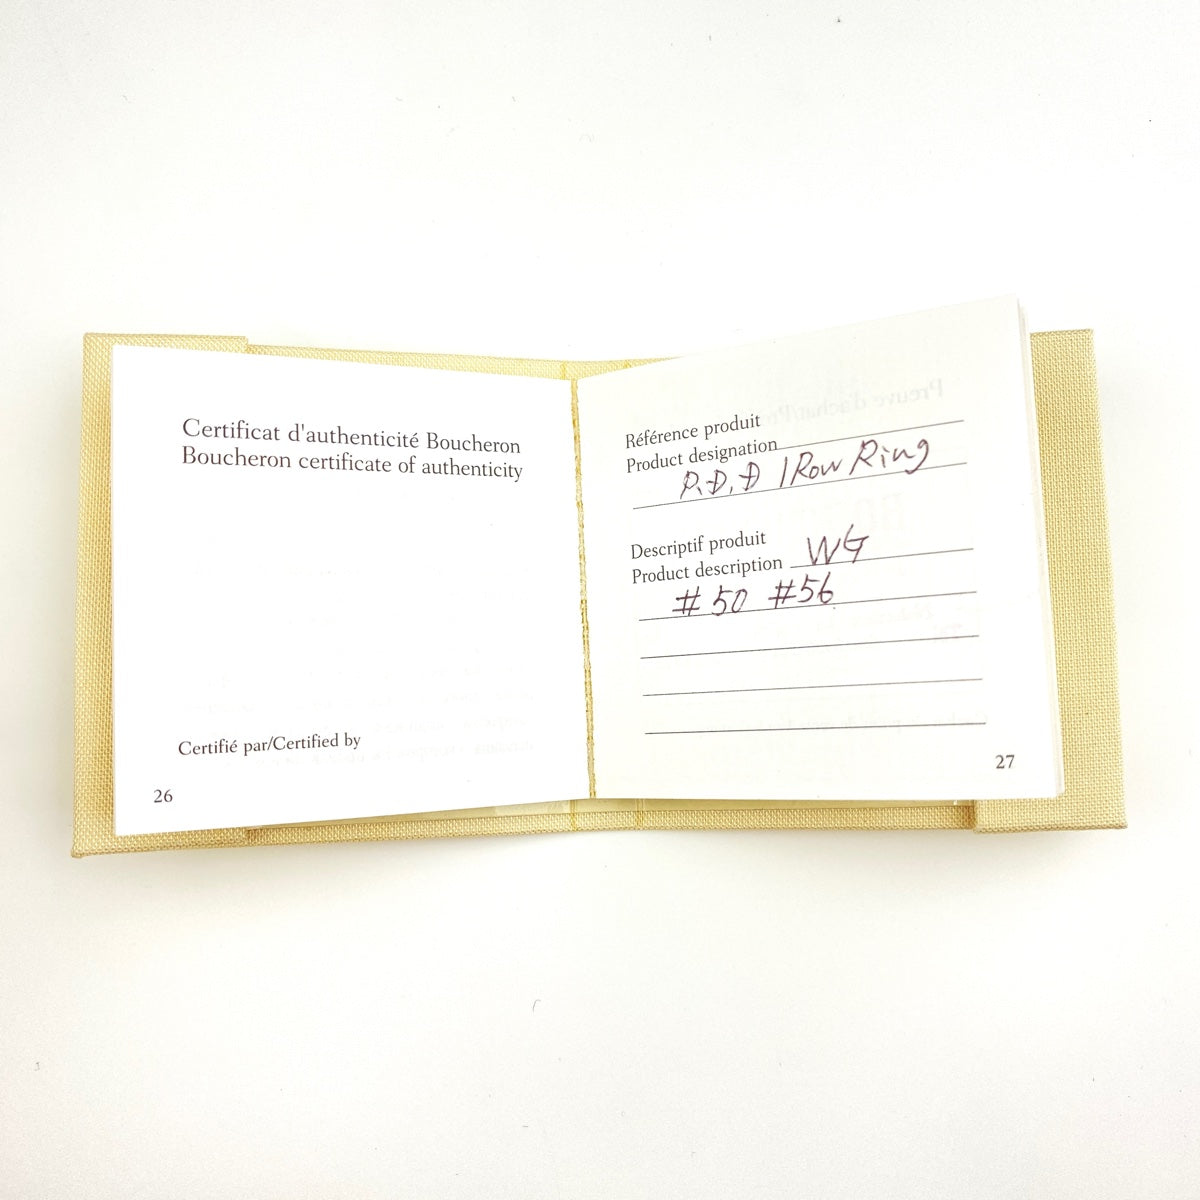 Certificat d'authenticité Boucheron
Boucheron certificate of authenticity
Certifié par/Certified by
26
Référence produit
Product designation
P.D.D 1Row Ring
Descriptif produit
Product description WG
#50 #56
27